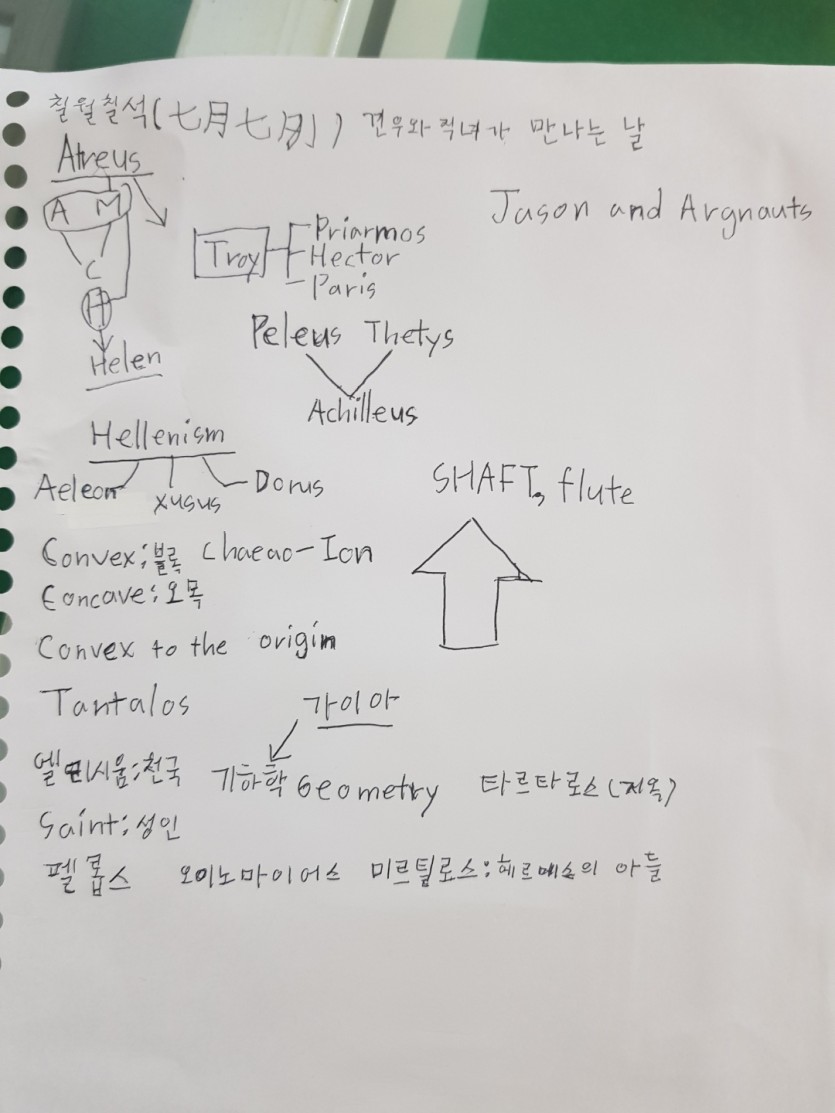 칠월칠석(七月七夕) 견우와 직녀가 만나는 날
Atreus
A M
C
H
Helen
Troy
Priarmos
Hector
Paris
Jason and Argnauts
Peleus Thetys
Achilleus
Hellenism
Aeleon Xusus Dorus
SHAFT, flute
Convex:볼록 Chaeao-Ion
Concave:오목
Convex to the origin
Tantalos 가이아
엘리시움:천국 기하학 Geometry 타르타로스(지옥)
Saint:성인
펠롭스 오이노마이어스 미르틸로스:헤르메스의 아들